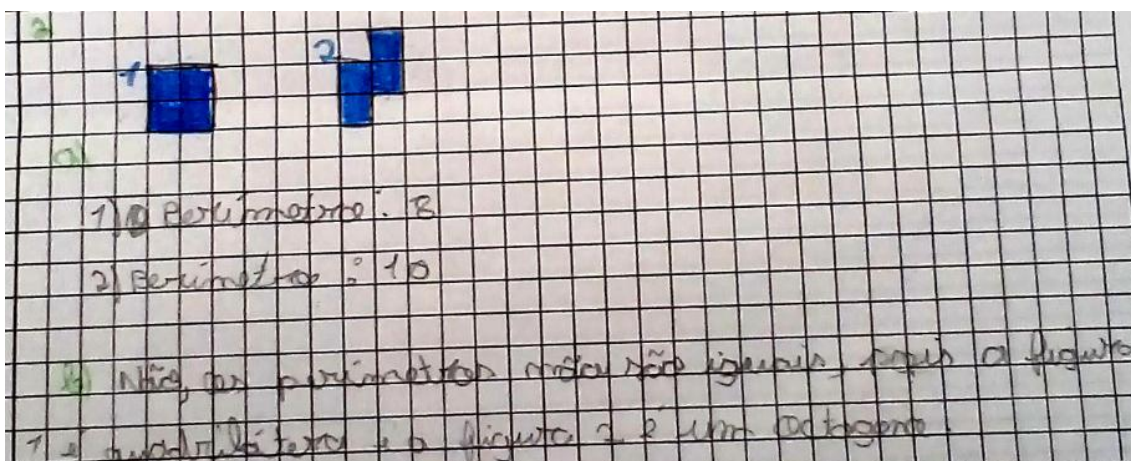 2
1 2
a)
1) Perimetro: 8
2) Perimetro: 10
b) Não, os perimetros não são iguais, pois a figura
1 é quadrilatero e a figura 2 é um octogono